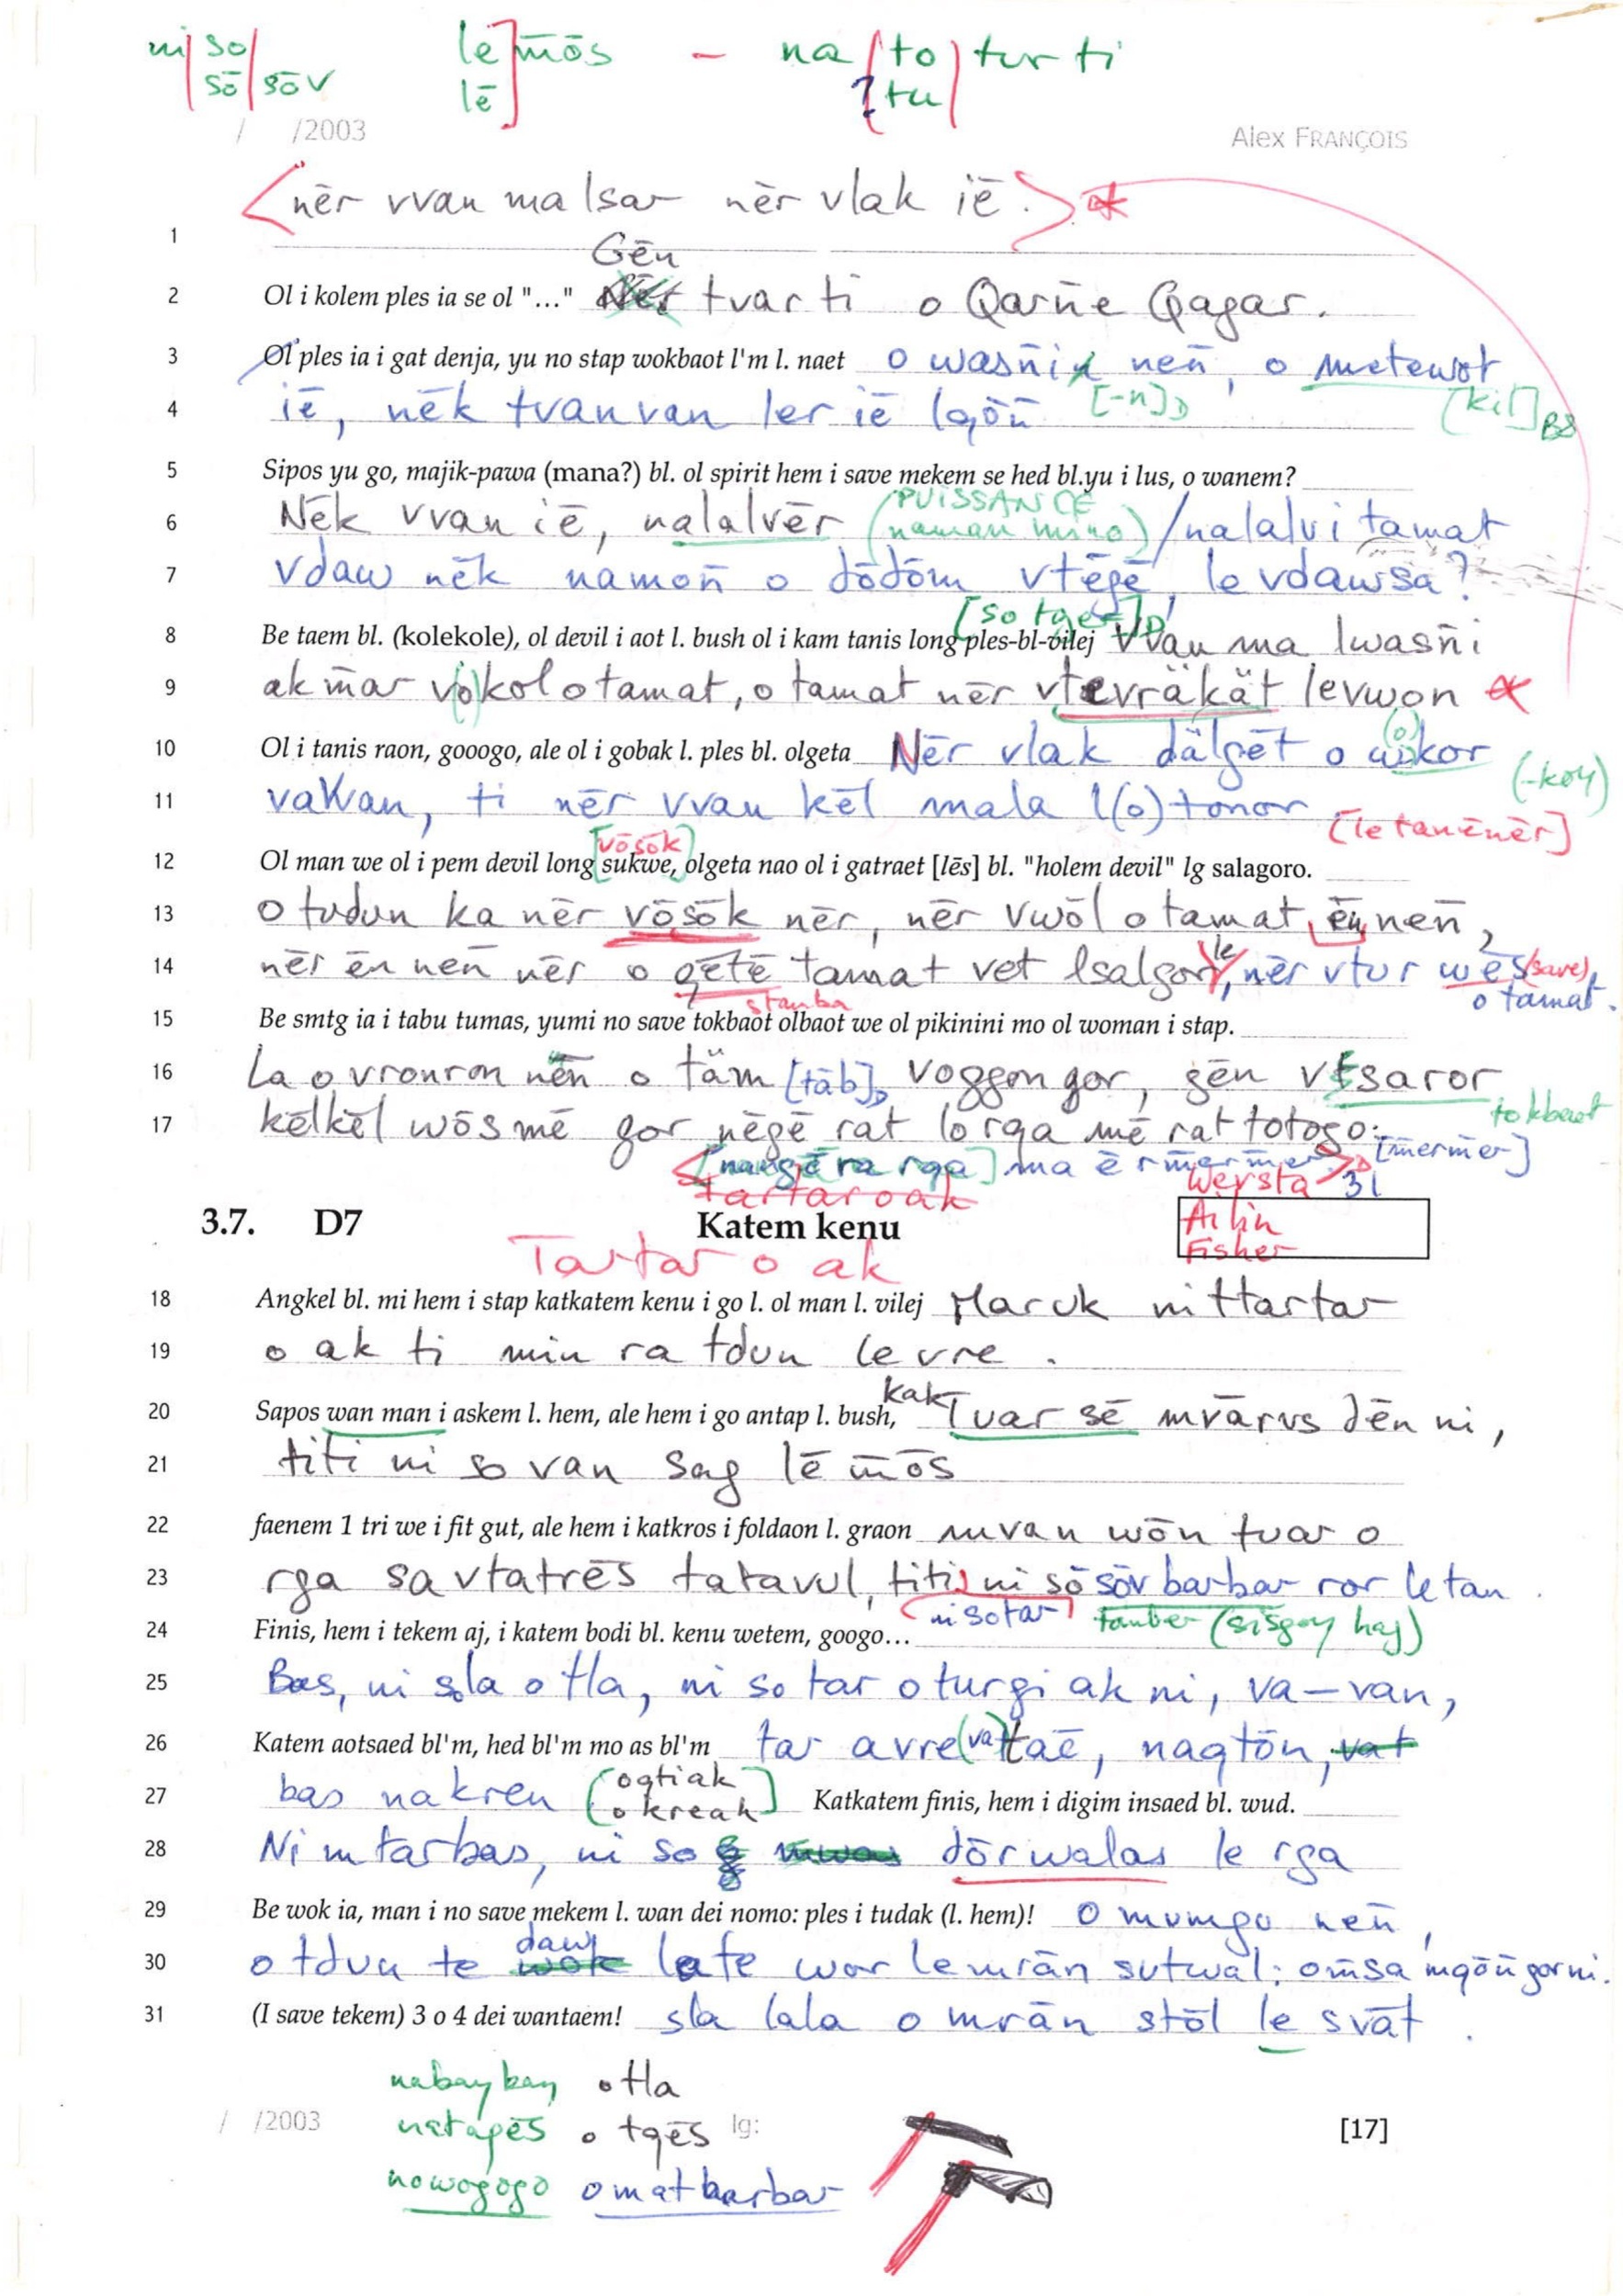 ni so lē m̄ōs – na to tur ti
sō sōv lē tu
/ /2003 Alex FRANÇOIS
<nēr vvan ma lsar nēr vlak iē.>
1
Gēn
2 Ol i kolem ples ia se ol "…" tvar ti o Qarn̄e Qagar.
3 Ol ples ia i gat denja, yu no stap wokbaot l'm l. naet o wasn̄i nen̄, o metewot
4 iē, nēk tvanvan ler iē lqōn̄ [-n]D [kil]BS
5 Sipos yu go, majik-pawa (mana?) bl. ol spirit hem i save mekem se hed bl.yu i lus, o wanem?
PUISSANCE
6 Nēk vvan iē, nalalvēr (naman mino) /nalalvi tamat
7 vdaw nēk namon̄ o dōdōm vtēgē, le vdawsa?
8 Be taem bl. (kolekole), ol devil i aot l. bush ol i kam tanis long ples-bl-vilej Vvan ma lwasn̄i
9 ak m̄ar vokol o tamat, o tamat nēr vtevräkät levwon
10 Ol i tanis raon, gooogo, ale ol i gobak l. ples bl. olgeta Nēr vlak dälgēt o wokor (-koy)
11 vakvan, ti nēr vvan kēl mala l(o) tonor [le tanēnēr]
[vōsōk]
12 Ol man we ol i pem devil long sukwe, olgeta nao ol i gatraet [lēs] bl. "holem devil" lg salagoro.
13 o tudun ka nēr vōsōk nēr, nēr vwōl o tamat ēn nen̄,
14 nēr ēn nen̄ nēr o qētē tamat vet lsalgor, nēr vtur wēs (save)
stamba o tamat.
15 Be smtg ia i tabu tumas, yumi no save tokbaot olbaot we ol pikinini mo ol woman i stap.
16 La o vronron nēn o täm [tāb]D voggongor, gēn vtsaror
tokbaot
17 kēlkēl wōsmē gor nēgē rat lorga mē rat totogo.
[nangēra rga] ma ē rm̄erm̄er [m̄erm̄er]
tartar o ak Wersta 31
3.7. D7 Katem kenu Ailin
Tartar o ak Fisher
18 Angkel bl. mi hem i stap katkatem kenu i go l. ol man l. vilej Maruk nittartar
19 o ak ti min ra tdun le vre.
kak
20 Sapos wan man i askem l. hem, ale hem i go antap l. bush, Tuar sē mvārus dēn ni,
21 titi ni so van sag lē m̄ōs
22 faenem 1 tri we i fit gut, ale hem i katkros i foldaon l. graon mvan wōn tuar o
23 rga savtatrēs tatavul, titi ni sō sōv barbar ror le tan.
ni sotar
24 Finis, hem i tekem aj, i katem bodi bl. kenu wetem, googo…
25 Bas, ni sola o tla, ni so tar o turgi ak ni, va–van,
26 Katem aotsaed bl'm, hed bl'm mo as bl'm tar avre (va)taē, naqtōn,
27 bas nakren [oqtiak o kreak] Katkatem finis, hem i digim insaed bl. wud.
28 Ni mtarbas, ni so dōrwalas le rga
29 Be wok ia, man i no save mekem l. wan dei nomo: ples i tudak (l. hem)! o mumgu nen̄,
daw
30 o tdun te late war le mrān sutwal: om̄sa mqōn̄ gor ni.
31 (I save tekem) 3 o 4 dei wantaem! sla lala o mrān stōl le svāt.
nabaybay o tla
/ /2003 natagēs o tqēs lg: [17]
nowogogo o mat barbar